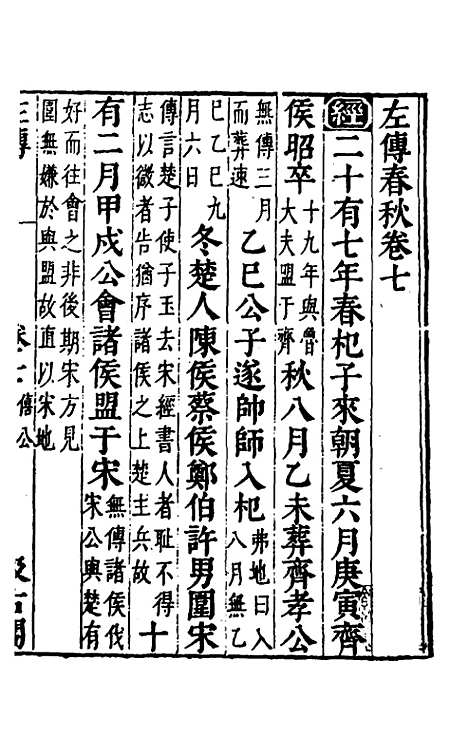 左傳春秋卷七
經二十有七年春杞子來朝夏六月庚寅齊
侯昭卒十九年與魯大夫盟于齊秋八月乙未葬齊孝公
無傳三月而葬速乙巳公子遂帥師入杞弗地曰入八月無乙
巳乙巳九月六日冬楚人陳侯蔡侯鄭伯許男圍宋
傳言楚子使子玉去宋經書人者恥不得志以微者告猶序諸侯之上楚主兵故十
有二月甲戌公會諸侯盟于宋無傳諸侯伐宋公與楚有
好而往會之非後期宋方見圍無嫌於與盟故直以宋地
僖公